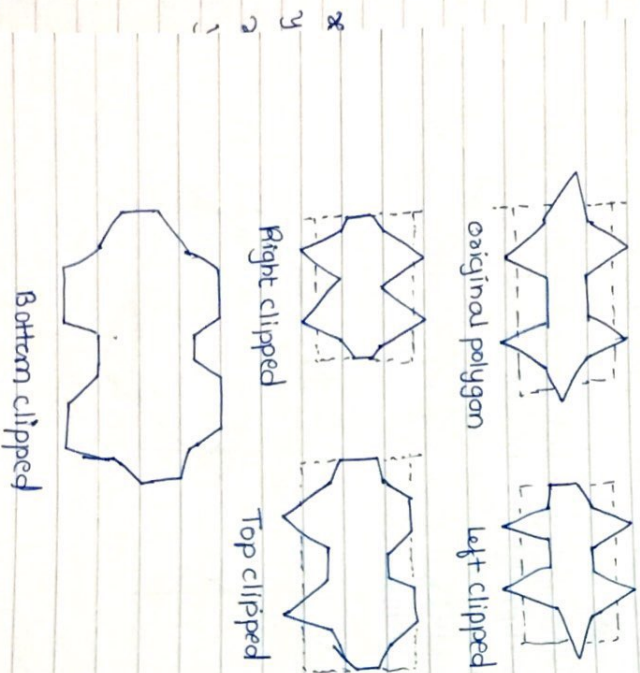 Original polygon
Left clipped
Right clipped
Top clipped
Bottom clipped